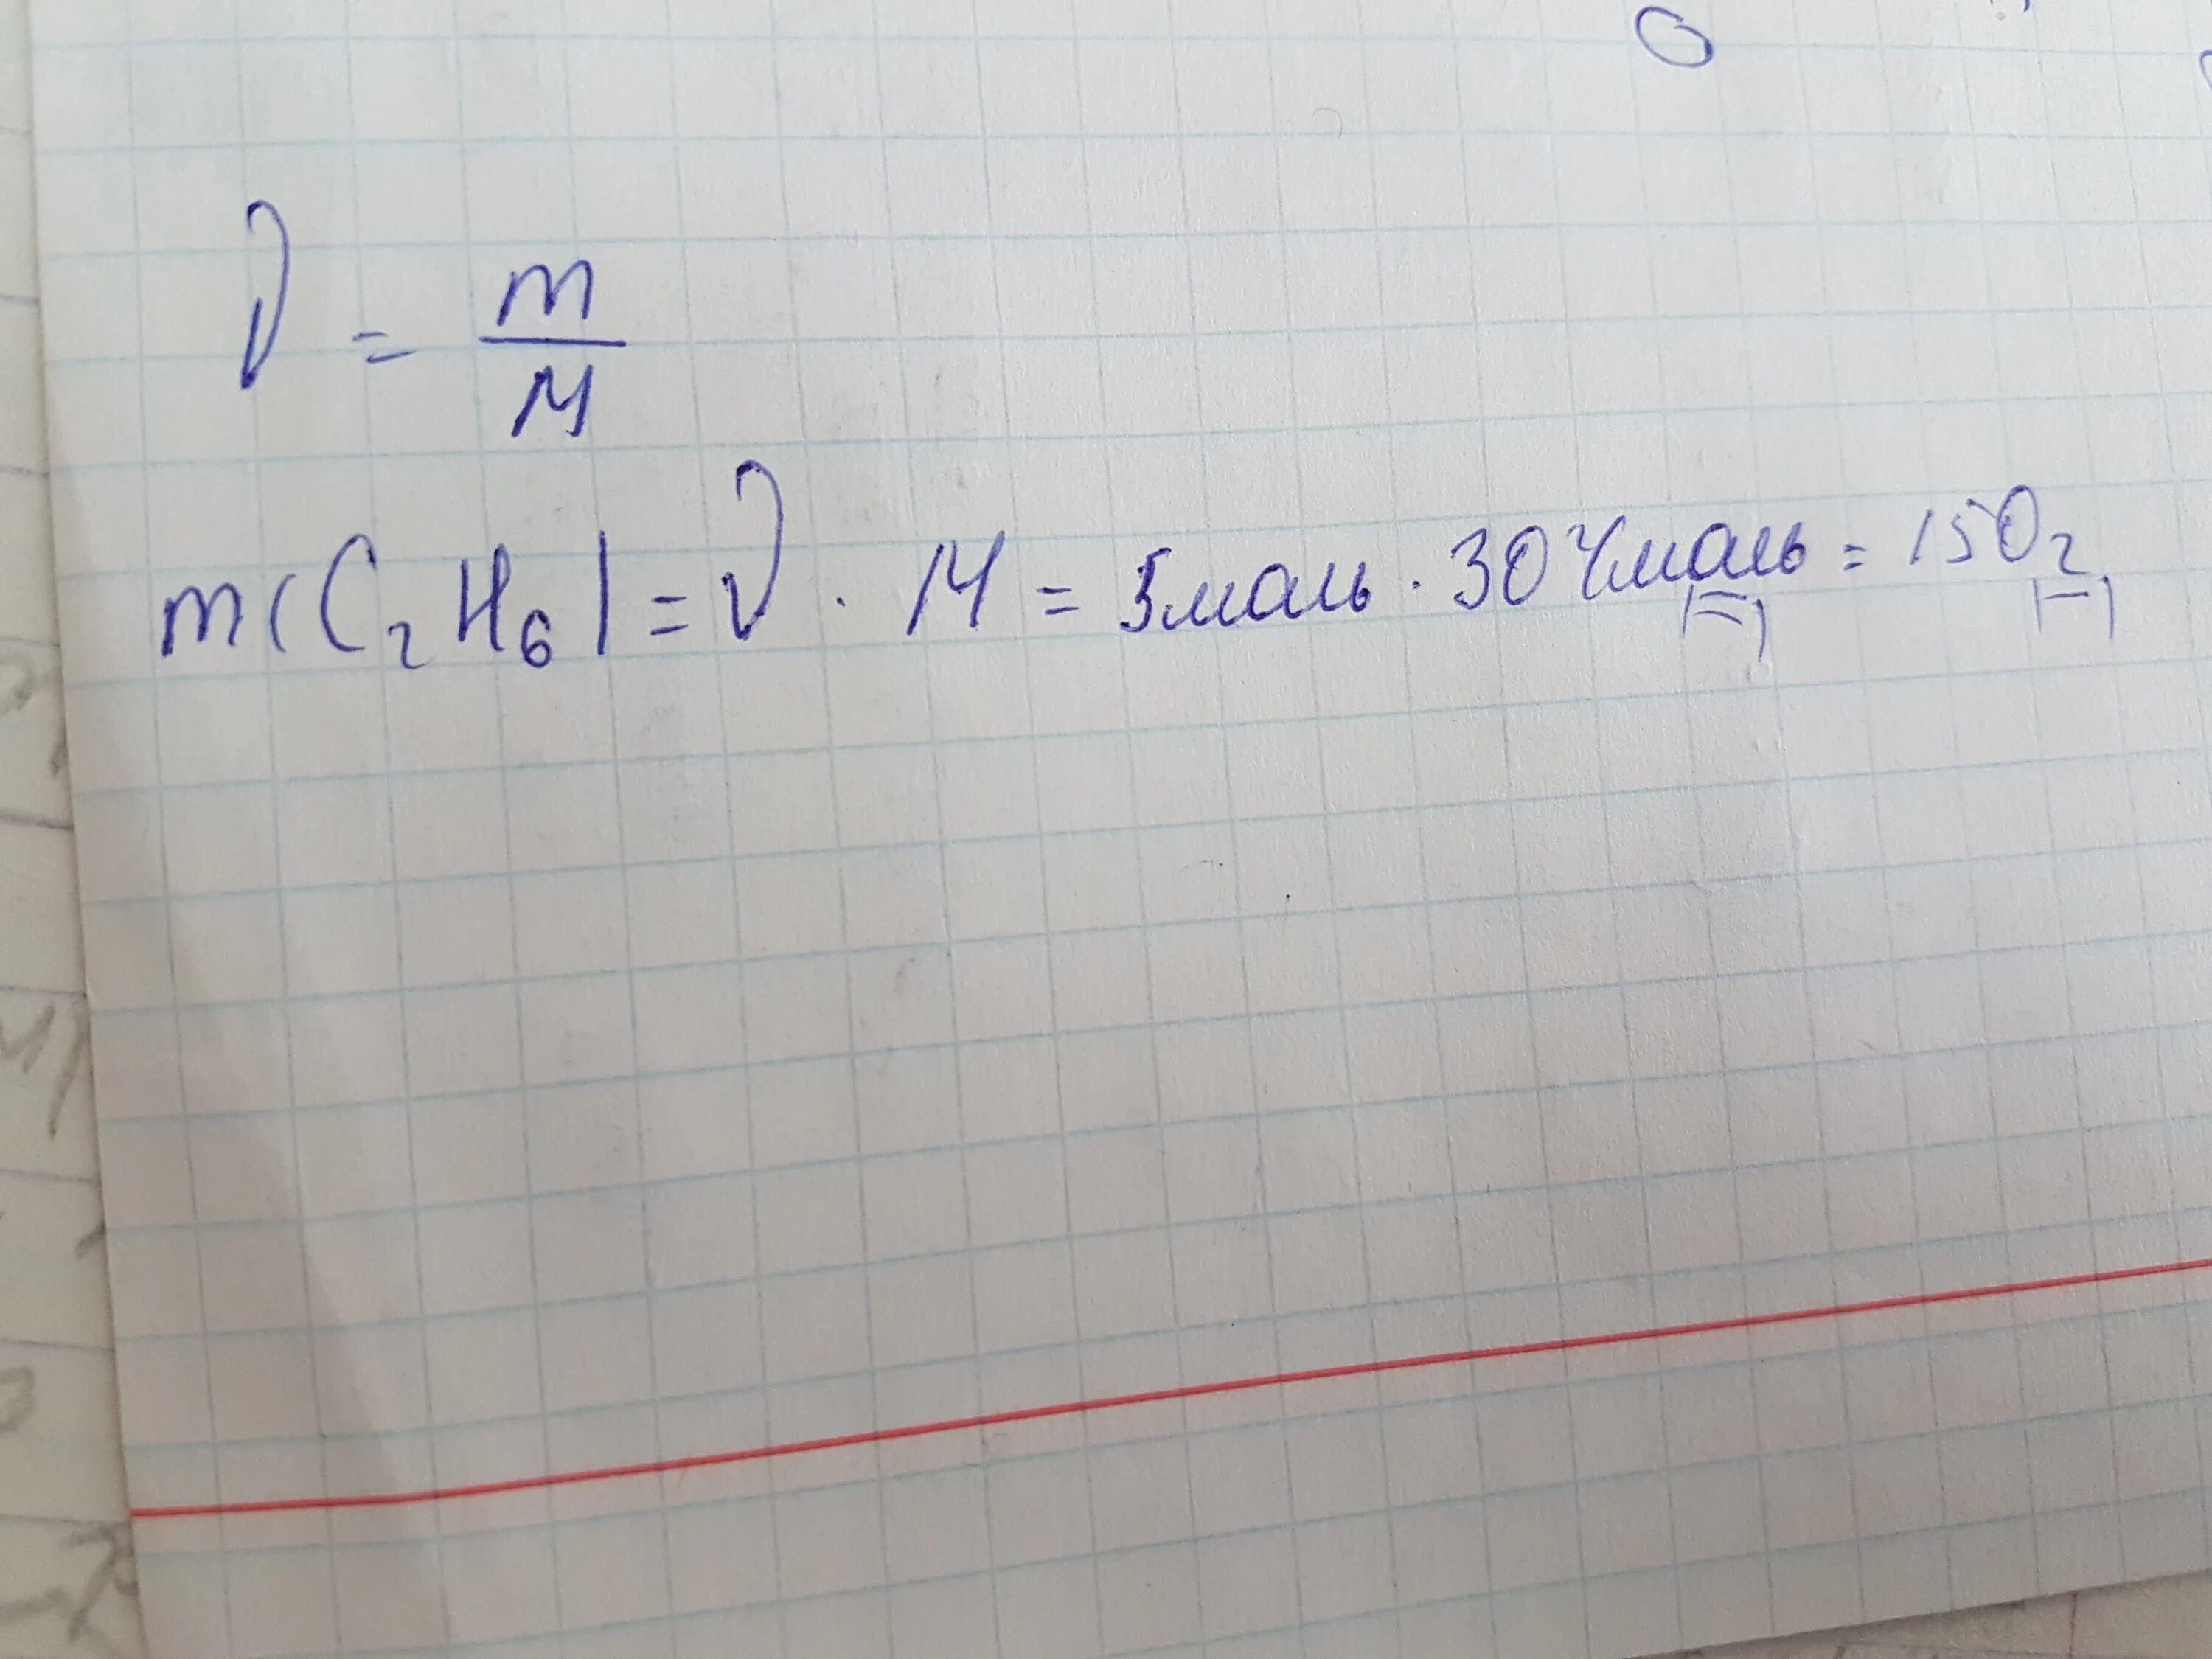 ν = m/M
m(C₂H₆) = ν · M = 5 моль · 30 г/моль = 150 г